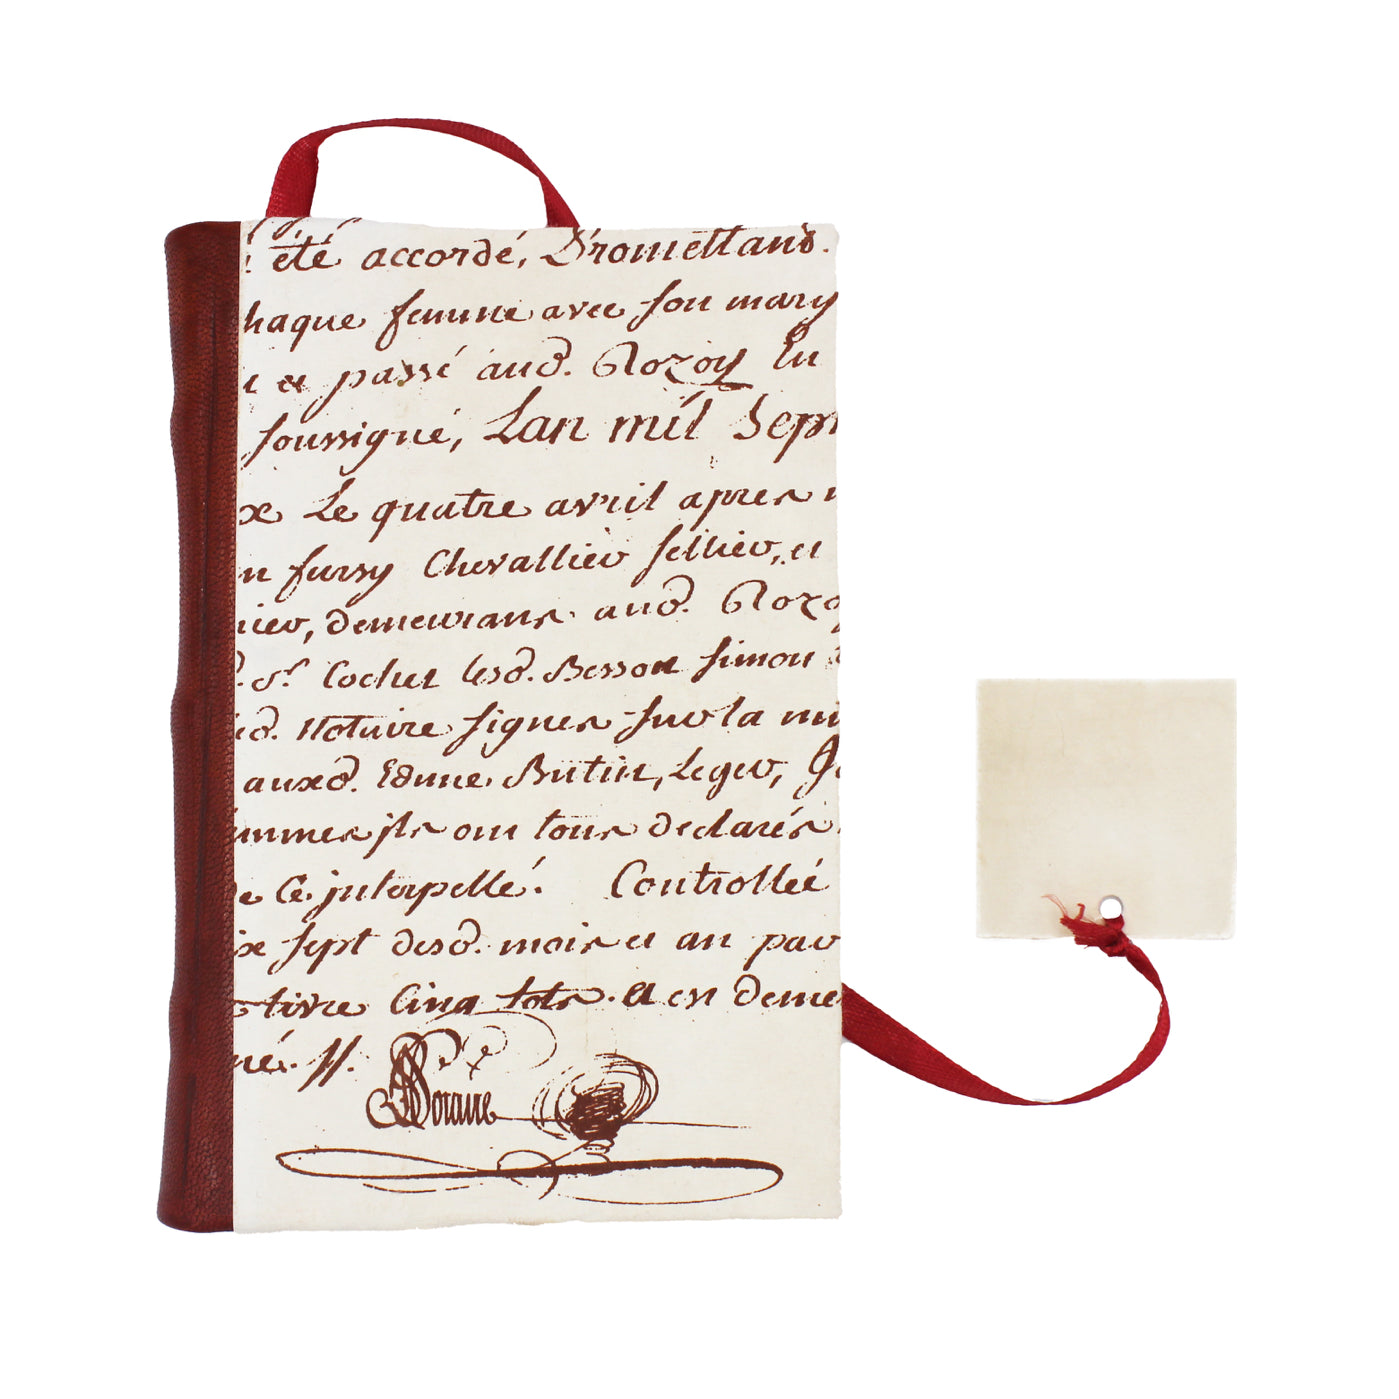 été accordé, Promettans.
haque femme avec son mary
et passé aud. Rozoy En
soussigné, Lan mil Sept
Le quatre avril apres
fursy Chevallier sellier, et
demeurans aud. Rozoy
Sr. Cochet lesd. Besson Simon
Notaire signes sur la
auxd. Edme Butin, Leger,
ils ont tous declarés
Ce interpellé. Controllée
sept desd. mois et an par
livre Cinq sols. et en
né. //.